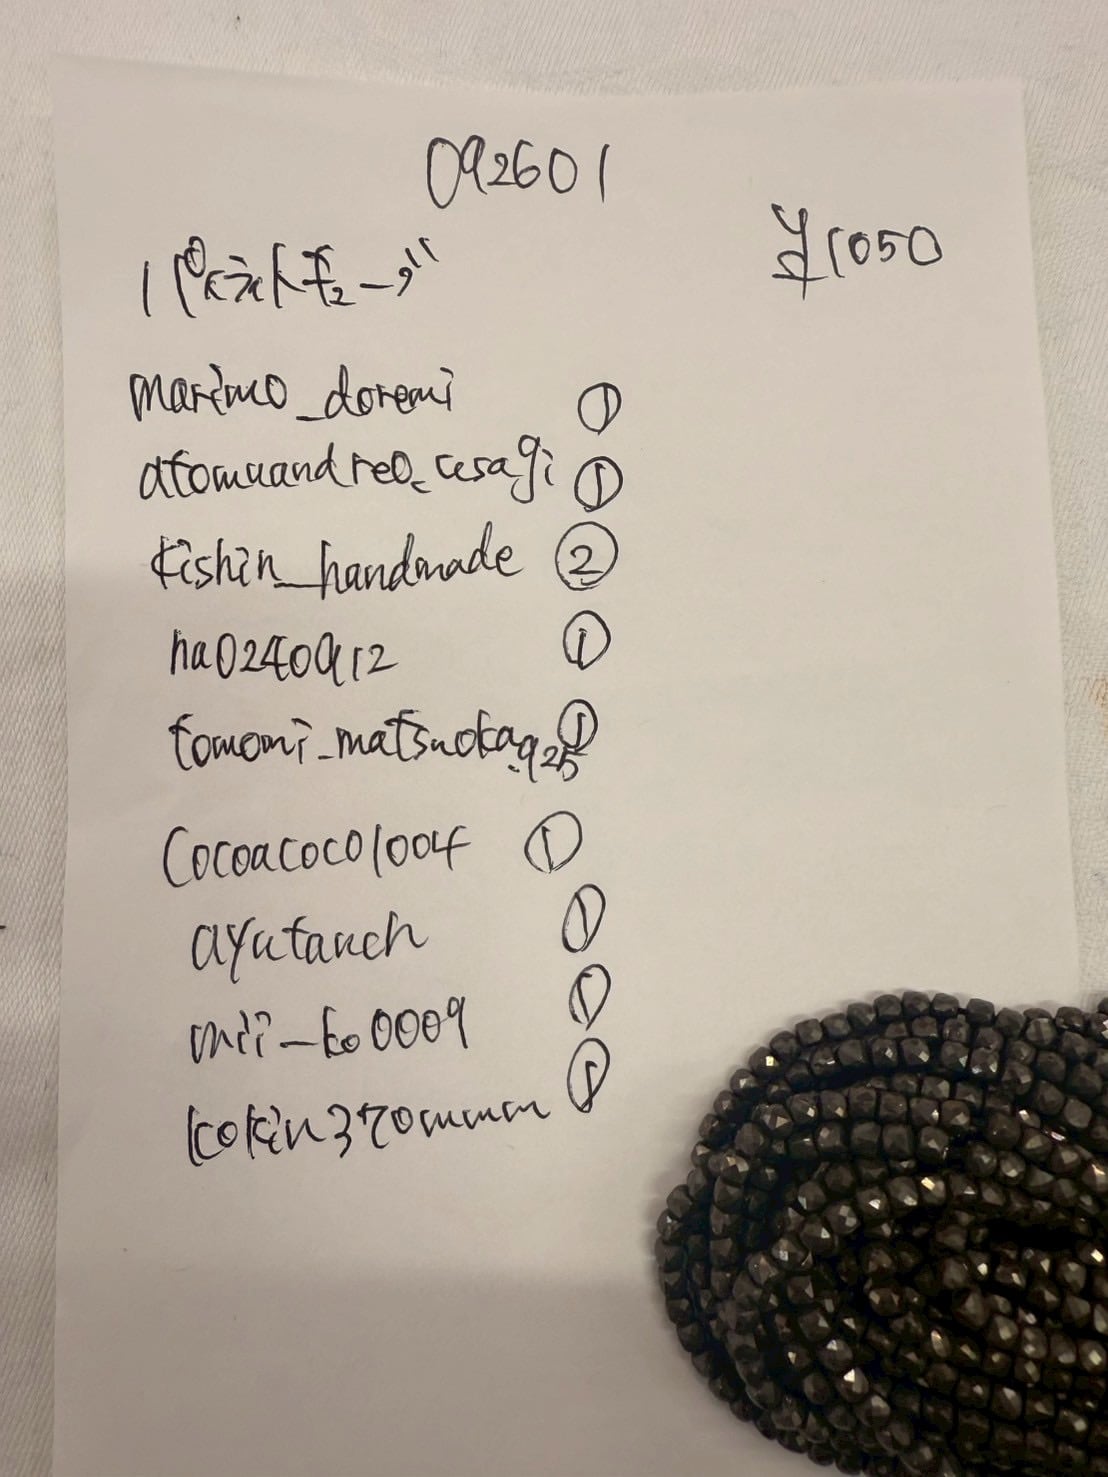 092601
¥1050
marimo_doremi ①
atomuandreo_usagi ①
kishin_handmade ②
na0240912 ①
tomomi_matsuoka.925 ①
Cocoacoco1004 ①
ayutauch ①
mii_ko0009 ①
kokin370mmm ①